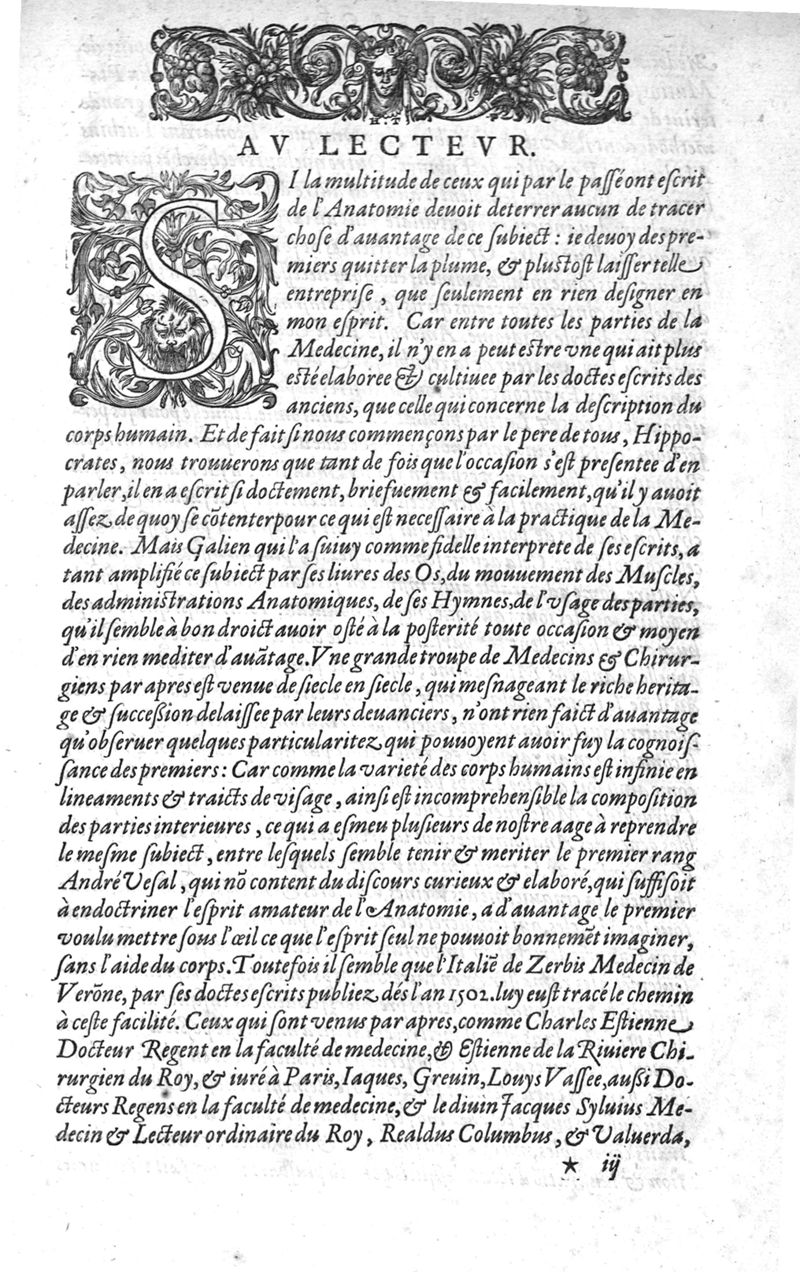 AV LECTEVR.
SI la multitude de ceux qui par le passé ont escrit
de l'Anatomie deuoit deterrer aucun de tracer
chose d'auantage de ce subiect : ie deuoy des pre-
miers quitter la plume, & plustost laisser telle
entreprise, que seulement en rien designer en
mon esprit. Car entre toutes les parties de la
Medecine, il n'y en a peut estre vne qui ait plus
esté elaboree & cultiuee par les doctes escrits des
anciens, que celle qui concerne la description du
corps humain. Et de fait si nous commençons par le pere de tous, Hippo-
crates, nous trouuerons que tant de fois que l'occasion s'est presentee d'en
parler, il en a escrit si doctement, briefuement & facilement, qu'il y auoit
assez de quoy se cōtenter pour ce qui est necessaire à la practique de la Me-
decine. Mais Galien qui l'a suiuy comme fidelle interprete de ses escrits, a
tant amplifié ce subiect par ses liures des Os, du mouuement des Muscles,
des administrations Anatomiques, de ses Hymnes, de l'vsage des parties,
qu'il semble à bon droict auoir osté à la posterité toute occasion & moyen
d'en rien mediter d'auātage. Vne grande troupe de Medecins & Chirur-
giens par apres est venue de siecle en siecle, qui mesnageant le riche herita-
ge & succession delaissee par leurs deuanciers, n'ont rien faict d'auantage
qu'obseruer quelques particularitez qui pouuoyent auoir fuy la cognois-
sance des premiers : Car comme la varieté des corps humains est infinie en
lineaments & traicts de visage, ainsi est incomprehensible la composition
des parties interieures, ce qui a esmeu plusieurs de nostre aage à reprendre
le mesme subiect, entre lesquels semble tenir & meriter le premier rang
André Vesal, qui nō content du discours curieux & elaboré, qui suffisoit
à endoctriner l'esprit amateur de l'Anatomie, a d'auantage le premier
voulu mettre sous l'œil ce que l'esprit seul ne pouuoit bonnemēt imaginer,
sans l'aide du corps. Toutefois il semble que l'Italiē de Zerbis Medecin de
Verōne, par ses doctes escrits publiez dés l'an 1502. luy eust tracé le chemin
à ceste facilité. Ceux qui sont venus par apres, comme Charles Estienne
Docteur Regent en la faculté de medecine, & Estienne de la Riuiere Chi-
rurgien du Roy, & iuré à Paris, Iaques, Greuin, Louys Vassee, aussi Do-
cteurs Regens en la faculté de medecine, & le diuin Jacques Syluius Me-
decin & Lecteur ordinaire du Roy, Realdus Columbus, & Valuerda,
* iij